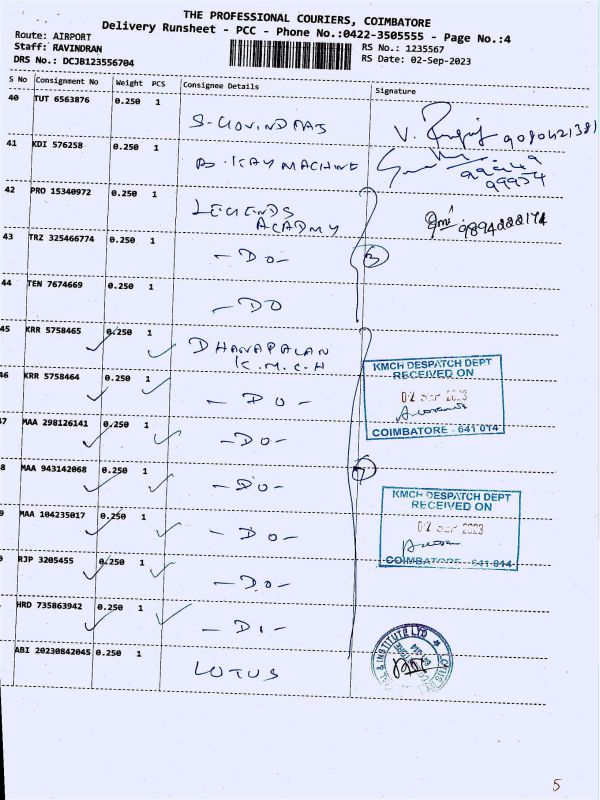 THE PROFESSIONAL COURIERS, COIMBATORE
Delivery Runsheet - PCC - Phone No.:0422-3505555 - Page No.:4
Route: AIRPORT
Staff: RAVINDRAN
RS No.: 1235567
DRS No.: DCJB123556704
RS Date: 02-Sep-2023
S No Consignment No Weight PCS Consignee Details Signature
40 TUT 6563876 0.250 1
S-GOVINDRAJ
V. 9080421381
41 KDI 576258 0.250 1
B. KAY MACHINE
99954
42 PRO 15340972 0.250 1
LEGENDS ACADMY
9894222174
43 TRZ 325466774 0.250 1
- DO -
3
44 TEN 7674669 0.250 1
- DO
45 KRR 5758465 0.250 1
DHANAPALAN
K.M.C.H
KMCH DESPATCH DEPT
RECEIVED ON
02 SEP 2023
COIMBATORE - 641 014
46 KRR 5758464 0.250 1
- DO -
47 MAA 298126141 0.250 1
- DO -
7
8 MAA 943142068 0.250 1
- DO -
KMCH DESPATCH DEPT
RECEIVED ON
02 SEP 2023
COIMBATORE - 641 014
9 MAA 104235017 0.250 1
- DO -
RJP 3205455 0.250 1
- DO -
HRD 735863942 0.250 1
- D1 -
ABI 20230842045 0.250 1
LOTUS
5